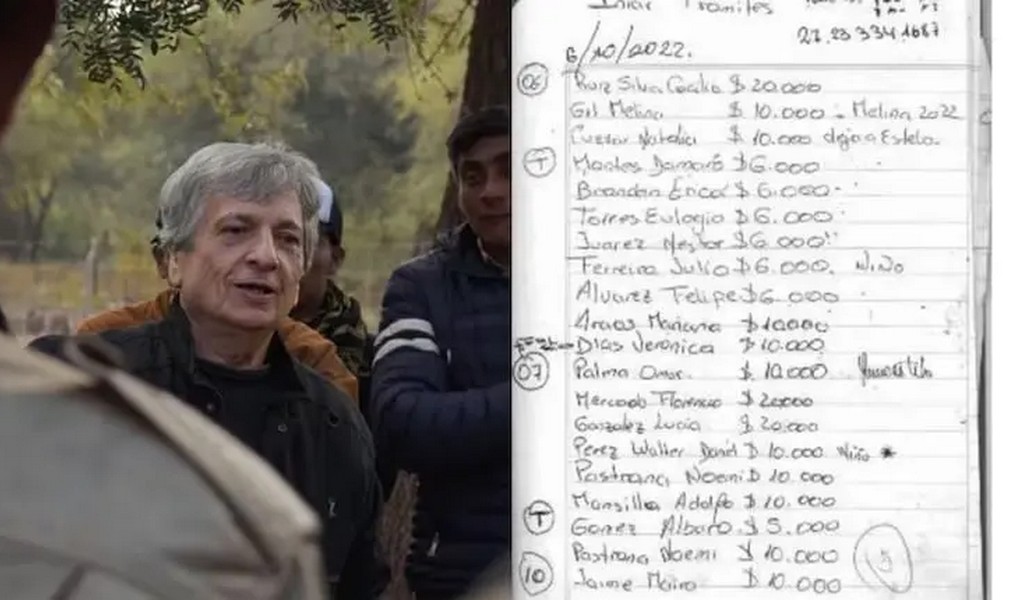 Iniciar Tramites
27.23334.1687
6/10/2022.
06 Ruiz Silva Cecilia $ 20.000
Gil Melina $ 10.000 - Melina 2022
Natalia $ 10.000 deja a Estela.
T Montes $ 6.000
Brandan Erica $ 6.000
Torres Eulogio $ 6.000
Juarez Nestor $ 6.000
Ferreira Julio $ 6.000. Niño
Alvarez Felipe $ 6.000
Mariana $ 10.000
Dias Veronica $ 10.000
07 Palma Omar $ 10.000
Mercado Florencio $ 20000
Gonzalez Lucia $ 20.000
Perez Walter David $ 10.000 Niño *
Pastrana Noemi $ 10.000
Mansilla Adolfo $ 10.000
T Gomez Albaro $ 5.000
Pastrana Noemi $ 10.000
10 Jaime Mairo $ 10.000